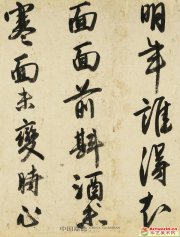 明年誰得
面面前斟酒未
寒面未變時心
中国嘉德